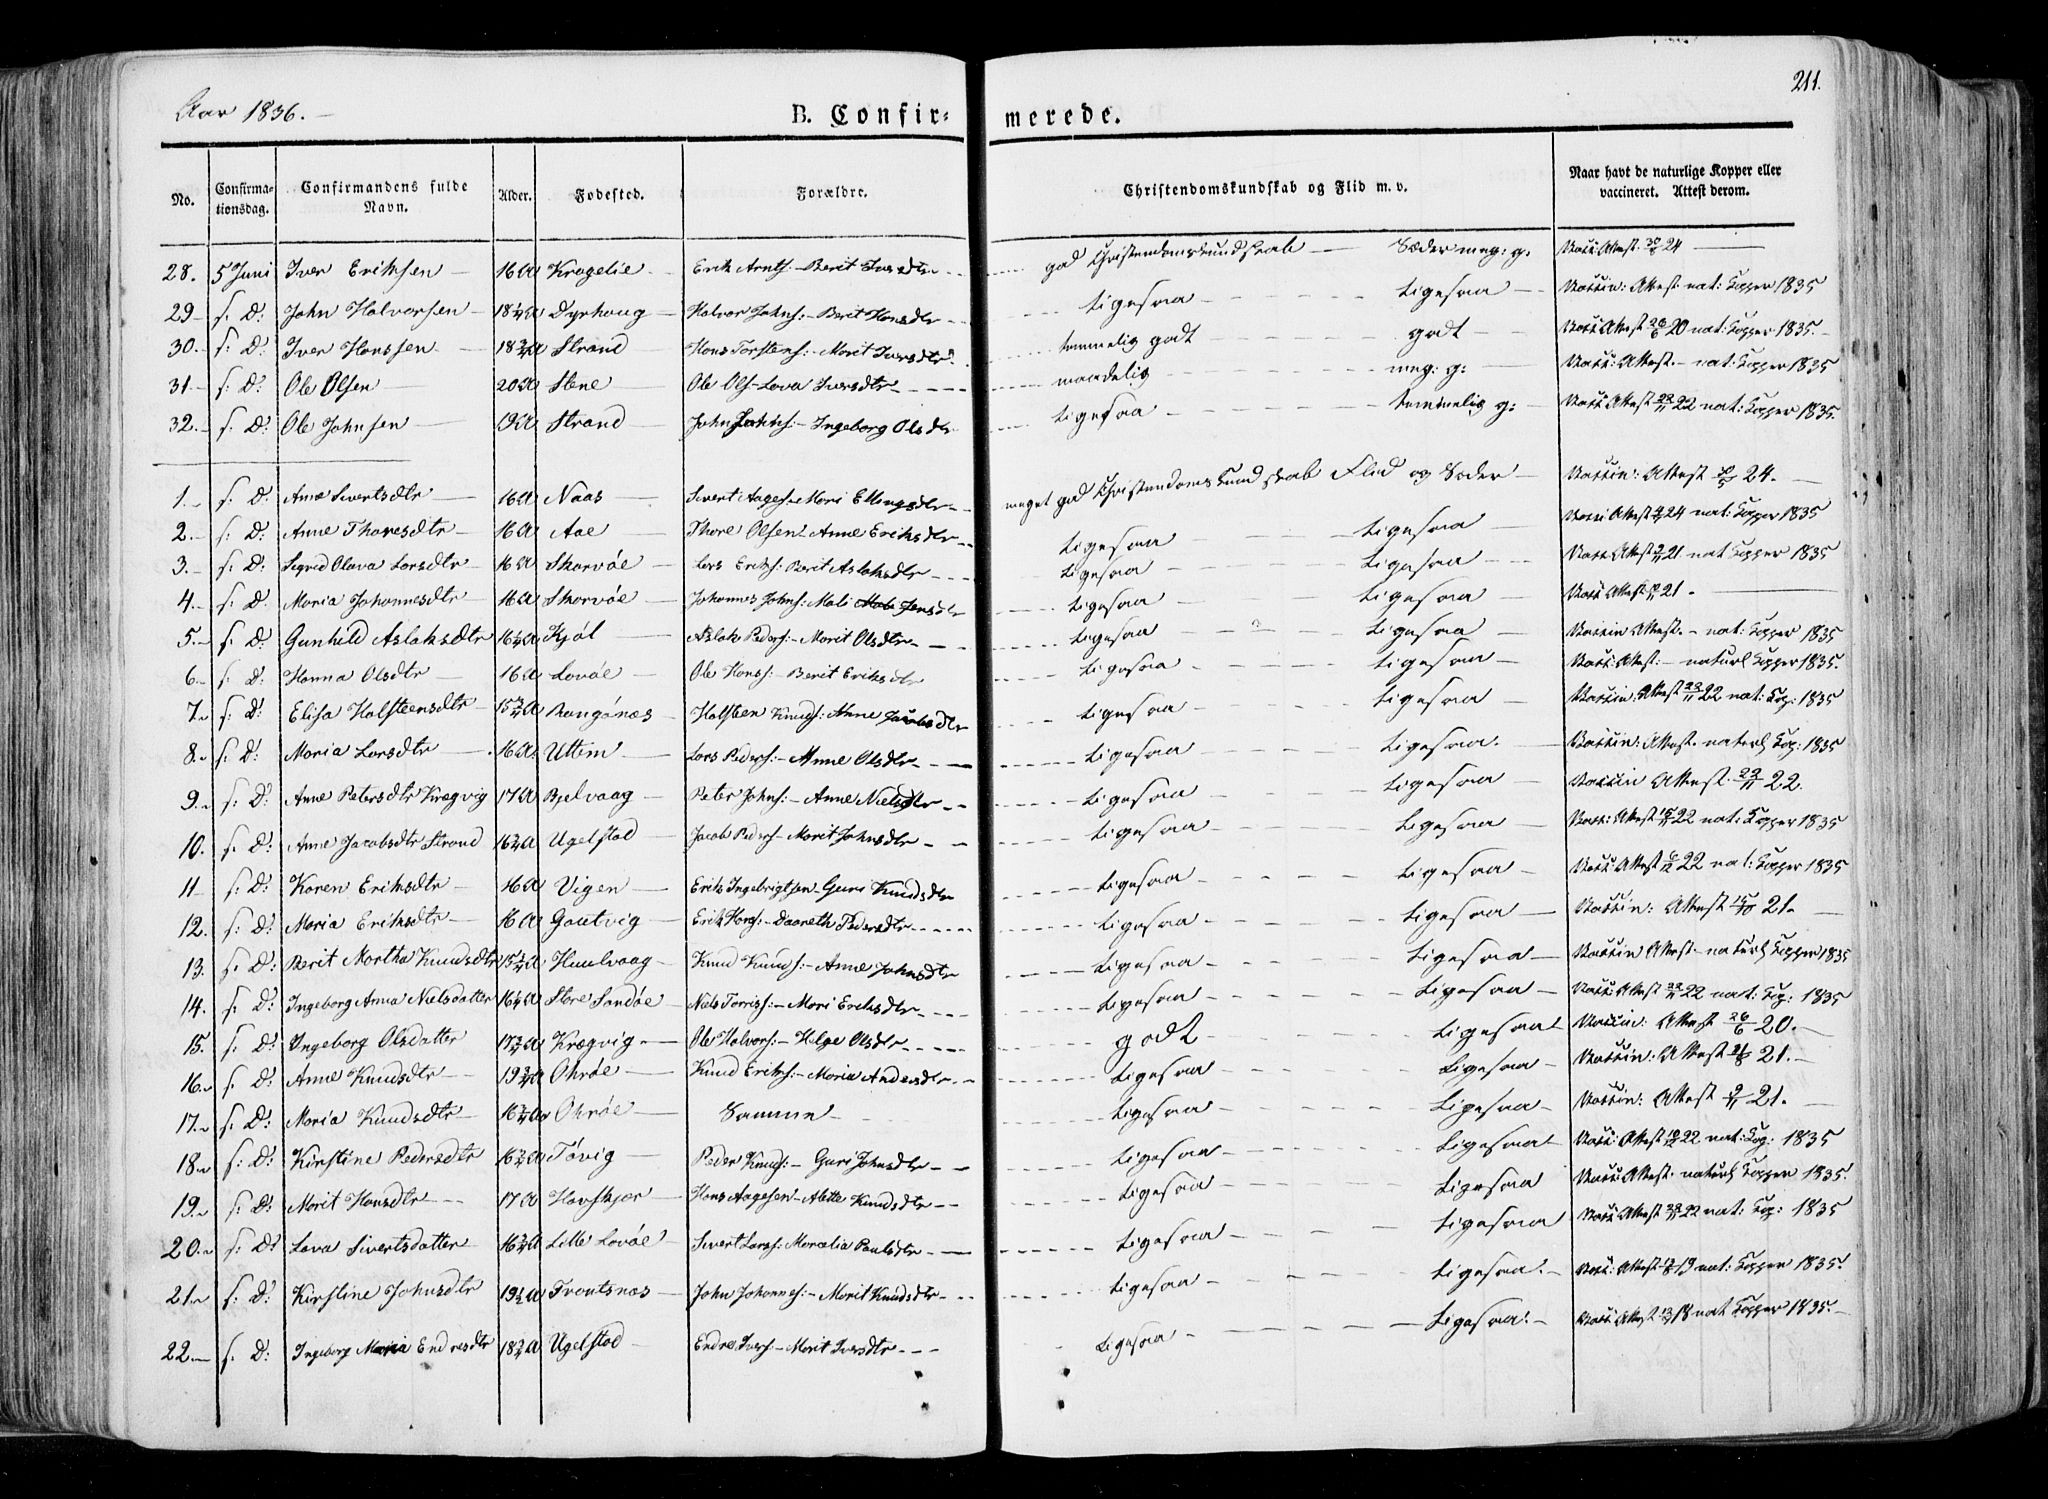 Aar 1836.
B. Confir=
merede.
211.
No. Confirmationsdag. Confirmandens fulde Navn. Alder. Fodested. Forældre. Christendomskundskab og Flid m. v. Naar havt de naturlige Kopper eller vaccineret. Attest derom.
28. 5 Juni Iver Eriksen 16 A Kragelie Erik Arnts: - Berit Iversdtr god Christendomskundskab Sæder meg: g: Vacc: Attest 24
29 s: D: John Halvorsen 18 1/4 A Dyrhoug Halvor Johns: - Berit Hansdtr ligesaa ligesaa Vaccin: Attest nat: Kopper 1835
30. s: D: Iver Hanssen 18 3/4 A Strand Hans Torstens: - Marit Iversdtr temmelig godt godt Vacc: Attest 26/6 20 nat: Kopper 1835
31 s: D: Ole Olsen 20 A Stene Ole Ols - Lava Iversdtr maadelig meg: g: Vacc: Attest - nat: Kopper 1835
32. s: D: Ole Johnsen 19 A Strand John Johns: - Ingeborg Olsdtr ligesaa temmelig g: Vacc: Attest 22/11 22 nat: Kopper 1835.
1. s: D: Ane Sivertsdtr 16 A Naas Sivert Aages: Mari Ellingsdtr meget god Christendomskundskab Flid og Sæder Vaccin: Attest 24.
2. s: D: Anne Thoresdtr 16 A Aae Thore Olsen - Anne Eriksdtr ligesaa ligesaa Vacci Attest 24 nat: Kopper 1835
3. s: D: Sigrid Olava Larsdtr 16 A Skarvøe Lars Eriks: Berit Aslaksdtr ligesaa ligesaa Vacc Attest 21 nat Kopper 1835
4. s: D. Maria Johannesdtr 16 A Skarvøe Johannes Johns: Mali Jensdtr ligesaa ligesaa Vacc Attest 21.
5. s: D: Gunhild Aslaksdtr 16 1/2 A Kjøl Aslak Peders: - Marit Olsdtr ligesaa ligesaa Vaccin Attest. - nat: Kopper 1835
6 s: D: Hanna Olsdtr 16 A Lovøe Ole Hanss: Berit Eriksdtr ligesaa ligesaa Vacc: Attest: - naturl Kopper 1835.
7. s: D: Elisa Halsteensdtr 15 3/4 A Rangønæs Halsteen Knuds: Anne Jacobsdtr ligesaa ligesaa Vaccin: Attest 23/11 22 nat: Kop: 1835
8. s: D: Maria Larsdtr 16 A. Uttem Lars Peders: - Anne Olsdtr ligesaa ligesaa. Vaccin: Attest. naturl Kop: 1835
9. s: D: Anne Petersdtr Krægvig 17 A Bjelvaag Peter Johns: - Anne Nielsdtr ligesaa ligesaa Vaccin Attest 22/11 22.
10. s: D: Anne Jacobsdtr Strand 16 3/4 A Ugelstad Jacob Peders - Marit Johnsdtr ligesaa ligesaa Vacc: Attest 22 nat: Kopper 1835
11 s: D: Karen Eriksdtr 16 A Vigen Erik Ingebrigtsen - Guri Knudsdtr ligesaa ligesaa Vacc: Attest 22 nat: Kopper 1835
12. s: D: Maria Eriksdtr 16 A Gautvig Erik Hans: - Daareth Pedersdtr ligesaa ligesaa Vaccin: Attest 21.
13. s: D: Berit Martha Knudsdtr 15 1/4 A Huulvaag Knud Knuds: - Anne Johnsdtr ligesaa ligesaa Vaccin Attest - naturl Kopper 1835
14. s: D: Ingeborg Anna Nielsdatter 16 1/2 A Store Sandøe Niels Torriss: - Mari Eriksdtr ligesaa ligesaa Vacc: Attest 22/11 22 nat: Kop: 1835
15. s: D: Ingeborg Olsdatter 17 3/4 A Krægvig Ole Halvors: - Helge Olsdtr godt ligesaa Vaccin: Attest 26/6 20.
16. s: D: Anne Knudsdtr 19 3/4 A Ohrøe Knud Eriks: - Maria Andersdtr ligesaa ligesaa Vaccin: Attest 21.
17. s: D: Maria Knudsdtr 16 3/4 A Ohrøe Samme ligesaa ligesaa Vaccin: Attest 21.
18. s: D: Kirstine Pedersdtr 16 3/4 A Tøvig Peder Knuds: - Guri Johnsdtr ligesaa ligesaa Vacc: Attest 22 nat: Kop: 1835
19. s: D: Marit Hansdtr 17 A Havskjær Hans Aagesen - Alette Knudsdtr ligesaa ligesaa Vacc: Attest naturl Kopper 1835.
20. s: D: Lava Sivertsdatter 16 3/4 A Lille Lovøe Sivert Larss: Maralia Paulsdtr ligesaa ligesaa Vacc: Attest 22 nat: Kop: 1835
21. s: D: Kirstine Johnsdtr 19 1/2 A Trontsnæs John Johannes: - Marit Knudsdtr ligesaa ligesaa. Vacc: Attest 19 nat: Kopper 1835.
22. s: D: Ingeborg Maria Endresdtr 18 3/4 A Ugelstad Endre Ivers: - Marit Iversdtr ligesaa ligesaa. Vacc: Attest 18 nat Kopper 1835.